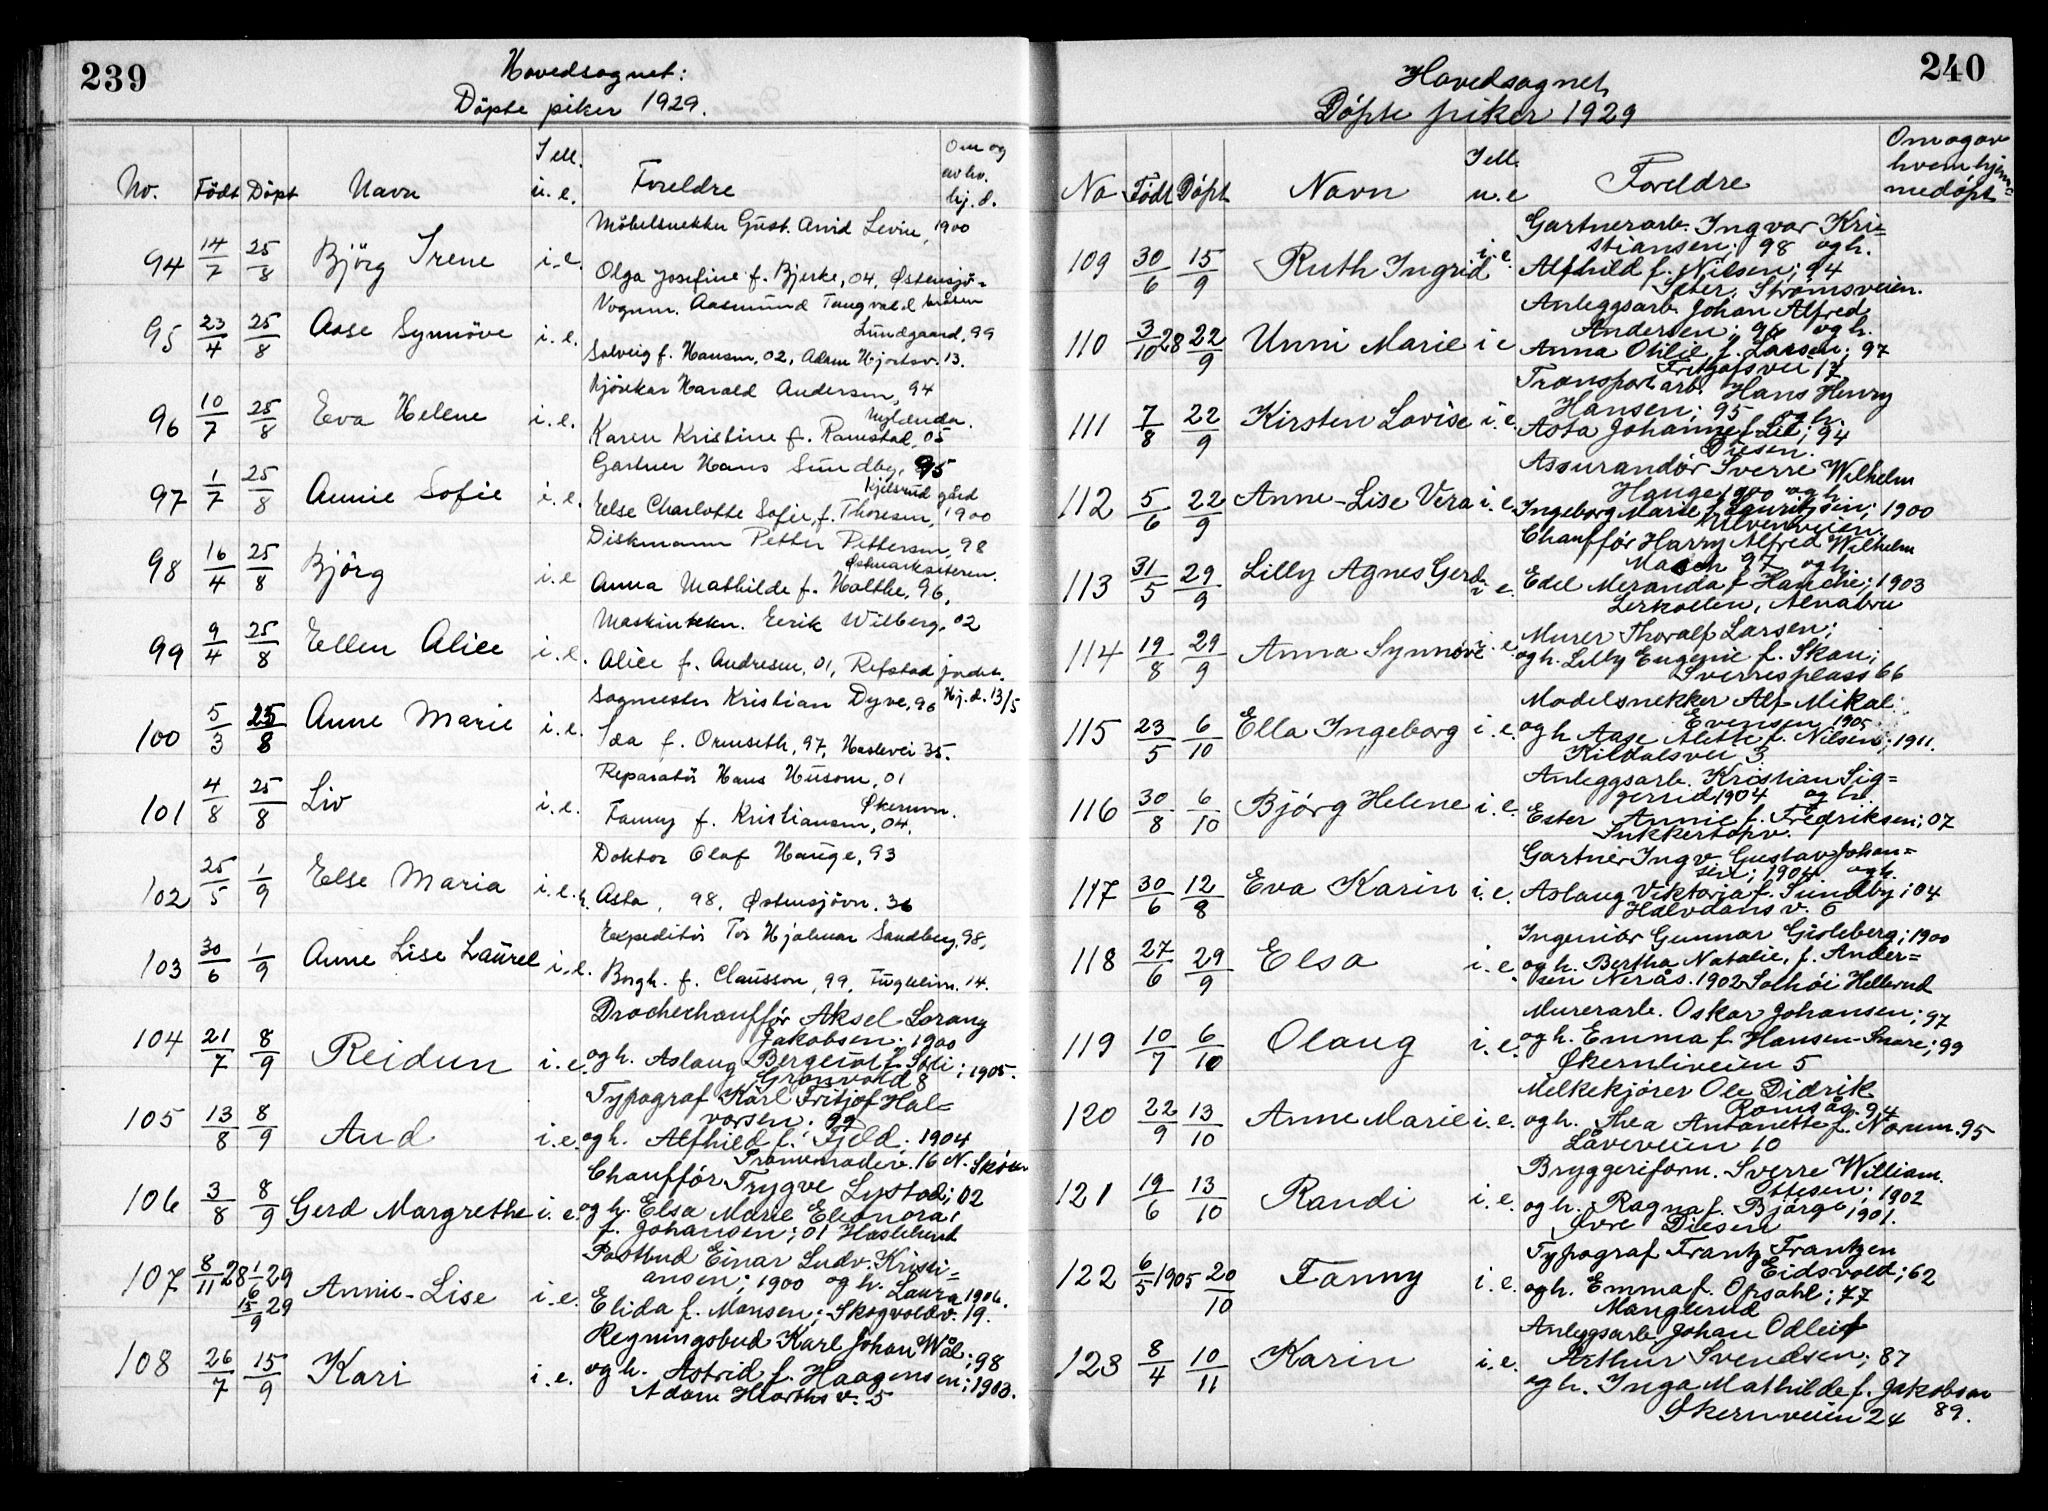 239
Hovedsognet:
Döpte piker 1929.
No. Födt Döpt Navn I ell. u. e. Foreldre Om og av hv. hj. d.
Möbelsnekker Gust. Arvid Levin, 1900
94 14/7 25/8 Björg Irene i.e.
Olga Josefine f. Bjerke, 04, Østensjö-
Vognm. Aasmund Tangvald
95 23/4 25/8 Aase Synnöve i.e. Lundgaard, 99
Solveig f. Hansen, 02, Adam Hjortsv. 13.
Kjörekar Harald Andersen, 94
96 10/7 25/8 Eva Helene i.e. Nylenda.
Karen Kristine f. Ramstad, 05
Gartner Hans Sundby, 95
97 1/7 25/8 Annie Sofie i.e. Kjelsrud gård
Else Charlotte Sofie, f. Thoresen, 1900
Diskmann Petter Pettersen, 98
98 16/4 25/8 Björg i.e. Østmarkseteren.
Anna Mathilde f. Holthe, 96,
Maskintekn. Eerik Wilberg, 02
99 9/4 25/8 Ellen Alice i.e.
Alice f. Andresen, 01, Refstad jordet.
Sagmester Kristian Dyve, 96 Hj. d. 13/5
100 5/3 25/8 Anne Marie i.e.
Ida f. Ormseth, 97, Haslevei 35.
Reparatör Hans Husom, 01
101 4/8 25/8 Liv i.e. Økernvn.
Fanny f. Kristiansen, 04,
Doktor Olaf Hauge, 93
102 25/5 1/9 Else Maria i.e.
Asta, 98, Østensjövn. 36
Expeditör Tor Hjalmar Sandberg, 98,
103 30/6 1/9 Anne Lise Laurel i.e.
Borgh. f. Clausson, 99, Fuglelivn. 14.
Droschechaufför Aksel Lorang
Jakobsen, 1900
104 21/7 8/9 Reidun i.e. og h. Aslaug Bergeriot f. Stli; 1905.
Grønvold 8
Typograf Karl Fritjof Hal=
vorsen. 99
105 13/8 8/9 Aud i.e. og h. Alfhild f. Fjeld. 1904
Promenadev. 16 N. Skøien
Chaufför Trygve Lystad; 02
106 3/8 8/9 Gerd Margrethe i.e. og h. Elsa Marie Eleonora,
f. Johansen; 01 Haslelund
Postbud Einar Ludv. Kristi=
ansen; 1900 og h. Laura 1906.
107 8/11 28 1/6 29 Annie-Lise i.e. Elida f. Monsen; Skogvoldv. 19.
15/9 29
Regningsbud Karl Johan Wål; 98
108 26/7 15/9 Kari i.e. og h. Astrid f. Haagensen; 1903.
Adam Hiorths v. 5
240
Hovedsognet
Döpte piker 1929
No Födt Döpt Navn I ell. u.e Foreldre Om og av hvem hjem= medöpt
Gartnerarb. Ingvar Kri=
stiansen; 98 og h.
109 30/6 15/9 Ruth Ingrid i.e. Alfhild f. Nilsen; 94
Seter, Strømsveien.
Anleggsarb. Johan Alfred
Andersen; 96 og h.
110 3/10 28 22/9 Unni Marie i e Anna Otilie f. Larsen; 97
Fritjofsvei 17
Transportarb. Hans Henry
Hansen; 95 og h.
111 7/8 22/9 Kirsten Lovise i.e. Asta Johanne f. Lie; 94
Disen.
Assurandör Sverre Wilhelm
Hauge 1900 og h.
112 5/6 22/9 Anne-Lise Vera i.e. Ingeborg Marie f. Lauritssen; 1900
Ulvenveien
Chauffór Harry Alfred Wilhelm
97 og h.
113 31/5 29/9 Lilly Agnes Gerd i e. Edel Meranda f. Hanche; 1903
Lerkollen, Alnabru
Murer Thoralf Larsen;
114 19/8 29/9 Anna Synnøve i.e. og h. Lilly Eugenie f. Skau;
Sverresplass 66
Modelsnekker Alf Mikal
Evensen 1905
115 23/5 6/10 Ella Ingeborg i.e. og h Aase Alette f. Nilsen; 1911.
Kildalsvei 3
Anleggsarb. Kristian Sig=
gerud 1904 og h.
116 30/8 6/10 Bjórg Helene i.e. Ester Annie f. Fredriksen; 07
Sukkertopv. 1
Gartner Ingv. Gustav Johan=
sen; 1904 og h.
117 30/6 12/8 Eva Karin i.e. Aslaug Viktoria f. Sundby; 04
Halvdans v. 5
Ingeniör Gunnar Gisleberg; 1900
118 27/6 29/9 Elsa i.e. og h. Bertha Natalie, f. Ander=
sen Nerås. 1902 Solhöi Hellerud
Murerarb. Oskar Johansen; 97
119 10/7 6/10 Olaug i.e. og h. Emma f. Hansen-Snare; 99
Økernliveien 5
Melkekjører Ole Didrik
Romsås. 94
120 22/9 13/10 Anne Marie i.e. og h. Thea Antonette f. Norum. 95
Låveveien 10
Bryggeriform. Sverre William.
Ottesen; 1902
121 19/6 13/10 Randi i.e. og h. Ragna f. Bjórge 1901.
Øvre Disen
Typograf Frantz Frantzen
Eidsvold; 62
122 6/5 1905 20/10 Fanny i.e. og h. Emma f. Opsahl; 77
Manglerud
Anleggsarb. Johan Odleif
123 8/4 10/11 Karin i.e. Arthur Svendsen; 87
og h. Inga Mathilde f. Jakobsen
Økernveien 24 89.